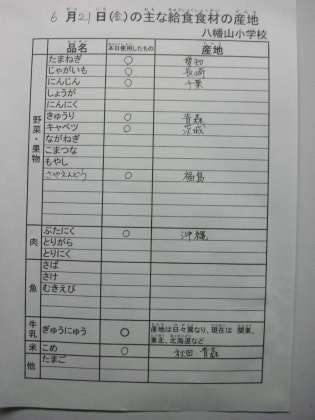 6月21日(金)の主な給食食材の産地
八幡山小学校
品名 本日使用したもの 産地
野菜・果物
たまねぎ ○ 愛知
じゃがいも ○ 長崎
にんじん ○ 千葉
しょうが
にんにく
きゅうり ○ 青森
キャベツ ○ 茨城
ながねぎ
こまつな
もやし
さやえんどう ○ 福島
肉
ぶたにく ○ 沖縄
とりがら
とりにく
魚
さば
さけ
むきえび
牛乳 ぎゅうにゅう ○ 産地は日々異なり、現在は 関東、
東北、北海道など
米 こめ ○ 秋田 青森
他 たまご